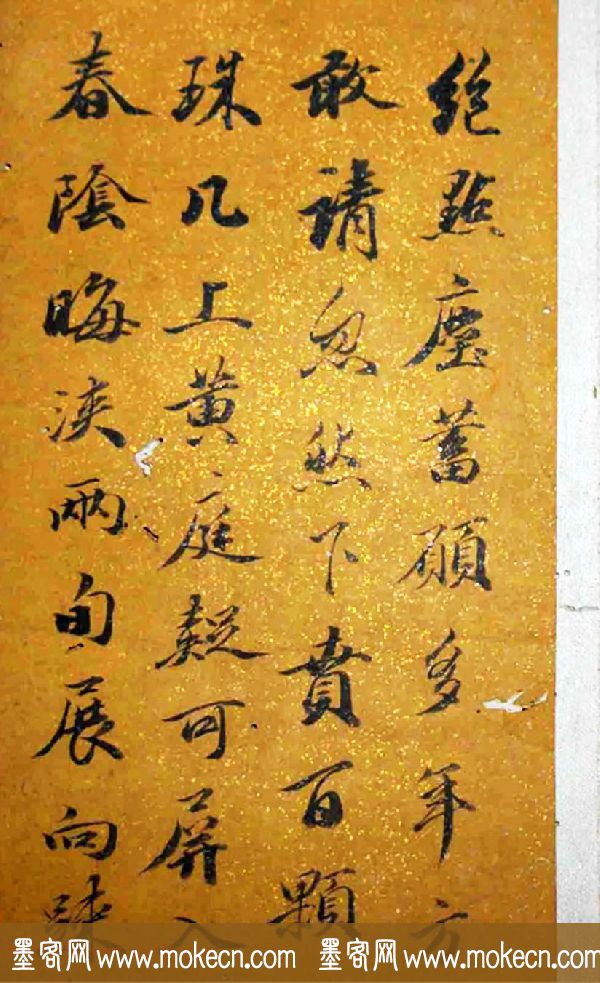 絕點塵蓄願多年方
敢請忽然下賁百顆
珠几上黃庭疑可屏
春陰晦浹兩旬展向
墨客网 www.mokecn.com 墨客网 www.mokecn.com